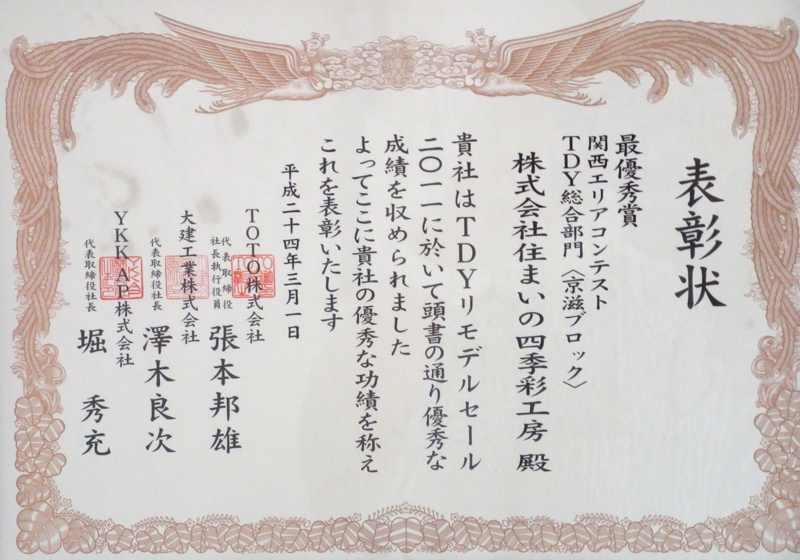 表彰状
最優秀賞
関西エリアコンテスト
TDY総合部門〈京滋ブロック〉
株式会社住まいの四季彩工房 殿
貴社はTDYリモデルセール
二〇一一に於いて頭書の通り優秀な
成績を収められました
よってここに貴社の優秀な功績を称え
これを表彰いたします
平成二十四年三月一日
TOTO株式会社
代表取締役
社長執行役員
張本邦雄
大建工業株式会社
代表取締役社長
澤木良次
YKK AP株式会社
代表取締役社長
堀 秀充